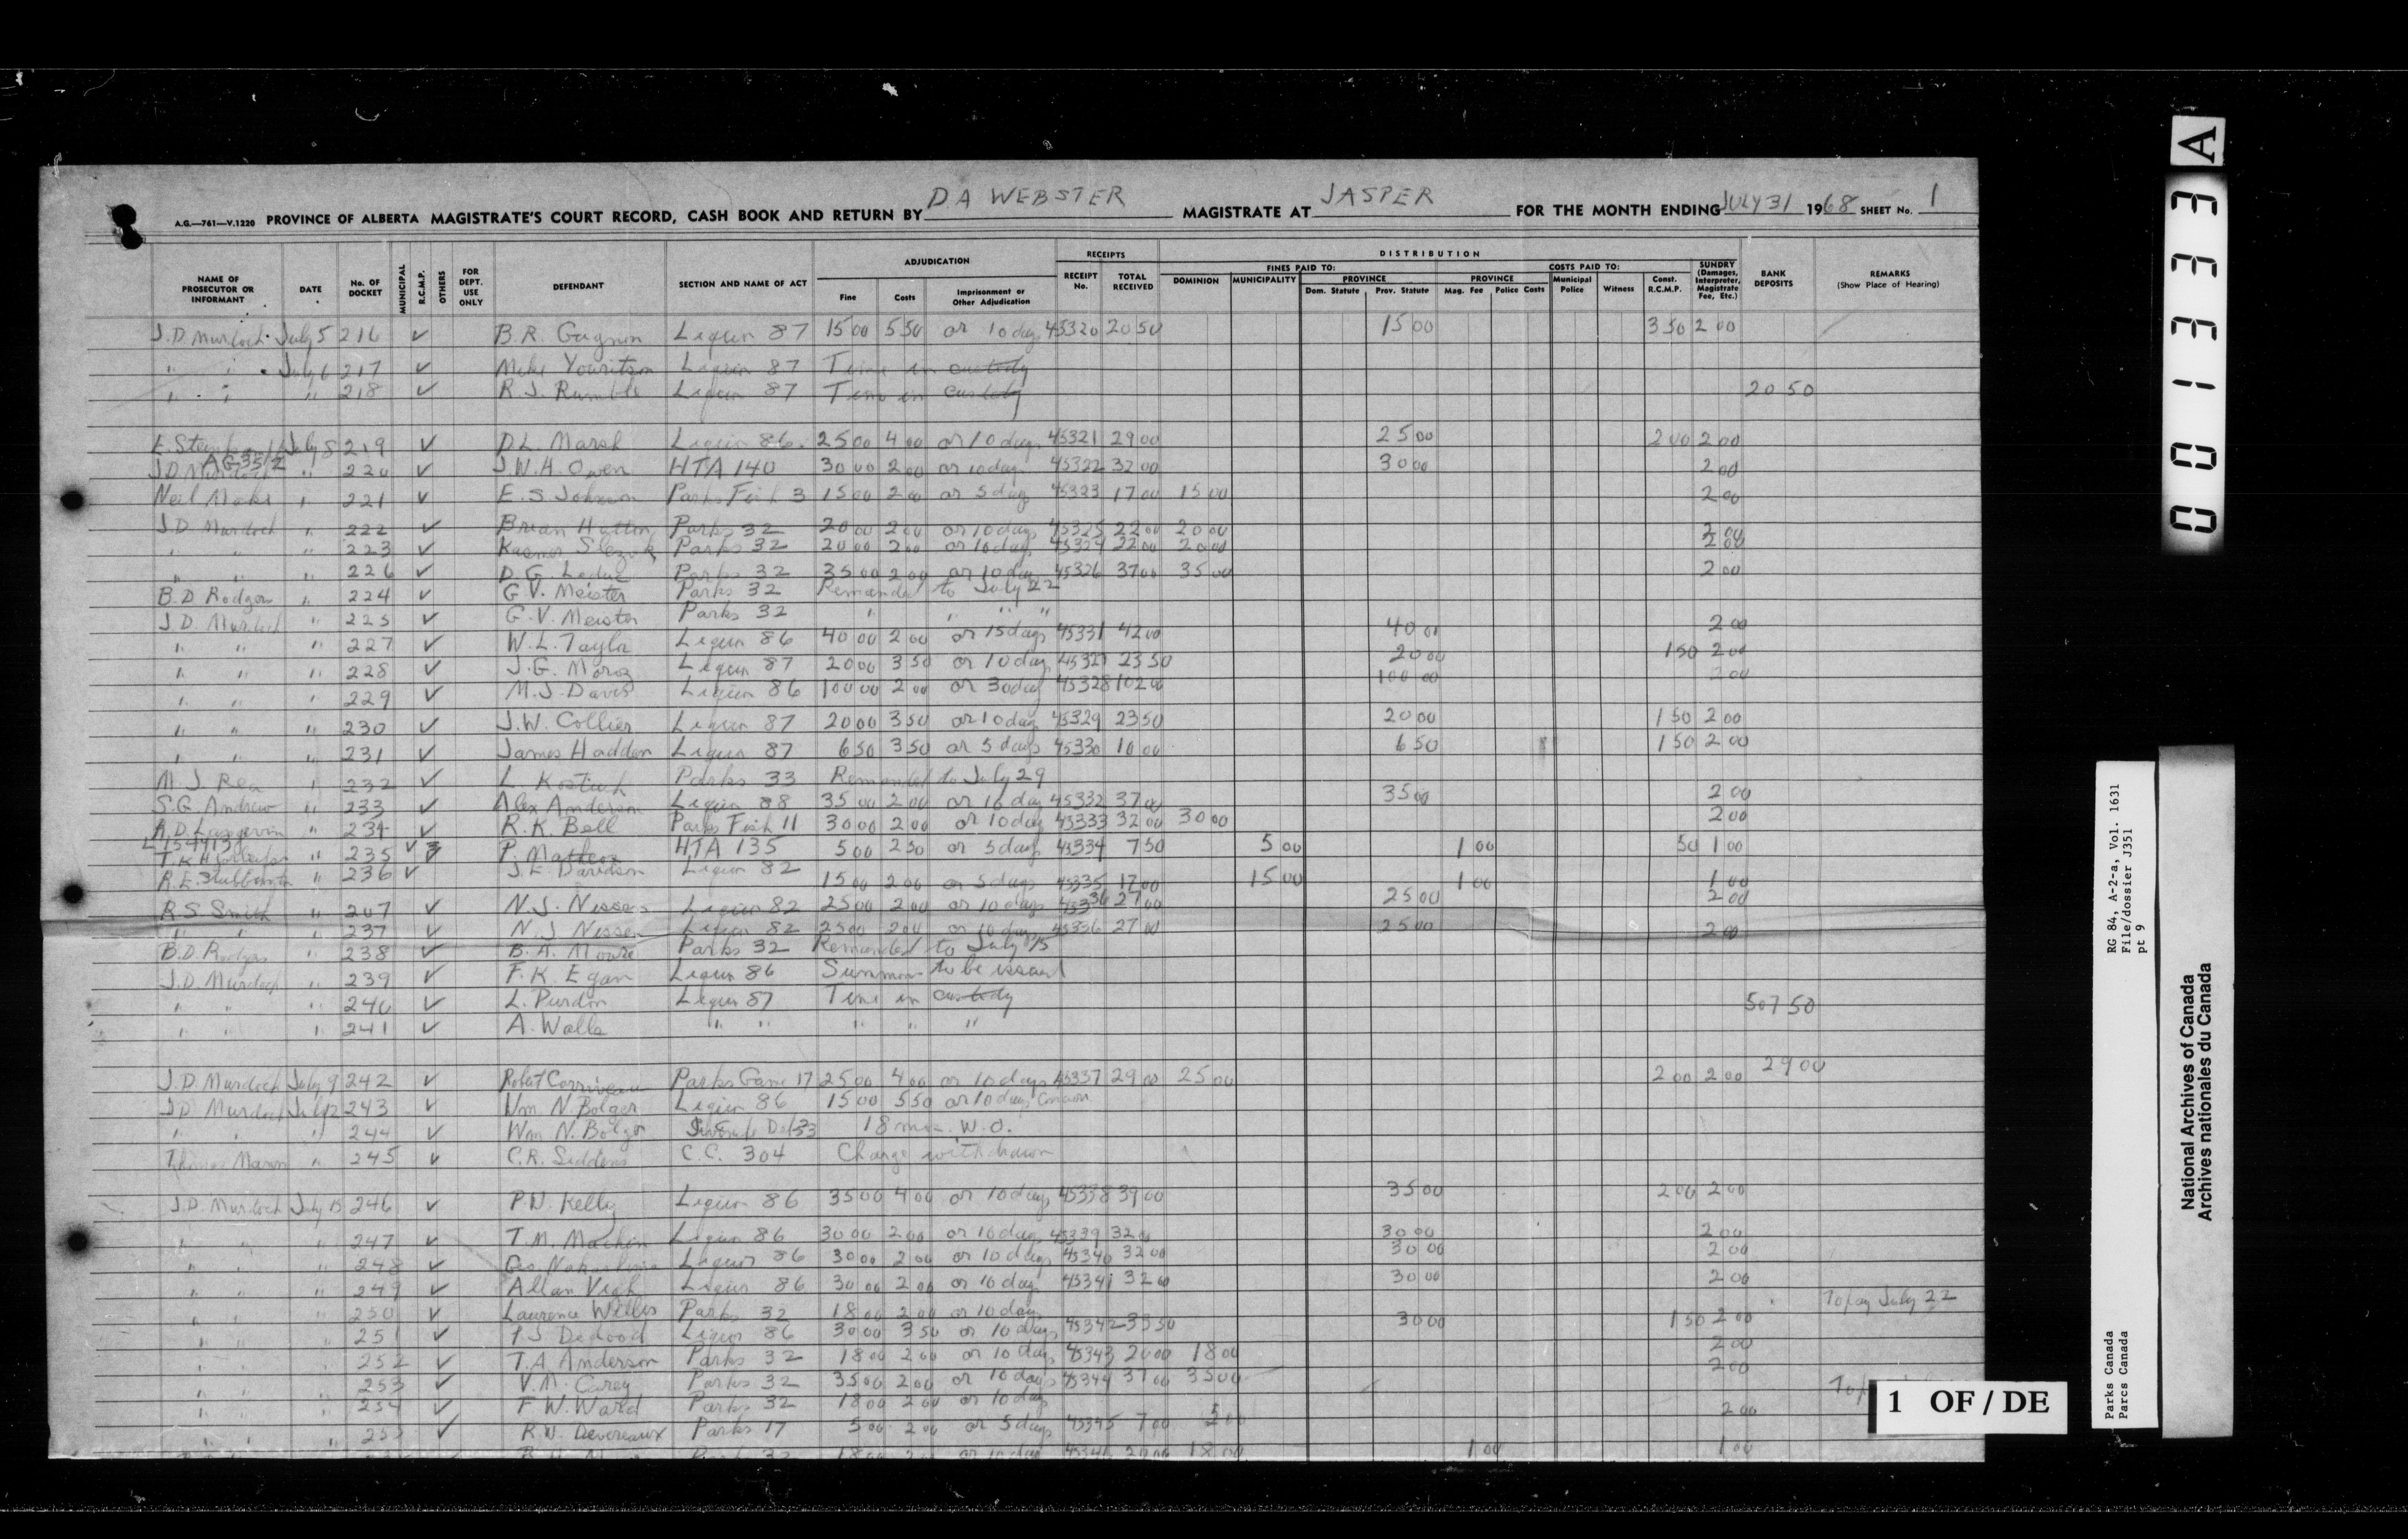 A.G.—761—V.1220 PROVINCE OF ALBERTA MAGISTRATE'S COURT RECORD, CASH BOOK AND RETURN BY D.A WEBSTER MAGISTRATE AT JASPER FOR THE MONTH ENDING JULY 31 1968 SHEET No. 1
ADJUDICATION RECEIPTS DISTRIBUTION
FINES PAID TO: COSTS PAID TO:
NAME OF PROSECUTOR OR INFORMANT DATE No. OF DOCKET MUNICIPAL R.C.M.P. OTHERS FOR DEPT. USE ONLY DEFENDANT SECTION AND NAME OF ACT Fine Costs Imprisonment or Other Adjudication RECEIPT No. TOTAL RECEIVED DOMINION MUNICIPALITY PROVINCE Dom. Statute Prov. Statute PROVINCE Mag. Fee Police Costs Municipal Police Witness Const. R.C.M.P. SUNDRY (Damages, Interpreter, Magistrate Fee, Etc.) BANK DEPOSITS REMARKS (Show Place of Hearing)
J.D. Murdoch July 5 216 ✓ B.R. Gagnon Liquor 87 15 00 5 50 or 10 days 45320 20 50 15 00 3 50 2 00
" " July 6 217 ✓ Mike Youritson Liquor 87 Time in custody
" " " 218 ✓ R.J. Rumble Liquor 87 Time in custody 20 50
July 8 219 ✓ D.L. Marsh Liquor 86 25 00 4 00 or 10 days 45321 29 00 25 00 2 00 2 00
AG 35/2
J.D. Murdoch " 220 ✓ J.W.H. Owen HTA 140 30 00 2 00 or 10 days 45322 32 00 30 00 2 00
Neil " 221 ✓ E.S Johnson Parks Fish 3 15 00 2 00 or 5 days 45323 17 00 15 00 2 00
J.D. Murdoch " 222 ✓ Brian Hutton Parks 32 20 00 2 00 or 10 days 45325 22 00 20 00 2 00
" " " 223 ✓ Parks 32 20 00 2 00 or 10 days 45324 22 00 20 00 2 00
" " " 226 ✓ D.G. Leduc Parks 32 35 00 2 00 or 10 days 45326 37 00 35 00 2 00
B.D Rodgers " 224 ✓ G.V. Meister Parks 32 Remanded to July 22
J.D. Murdoch " 225 ✓ G.V. Meister Parks 32 " " " "
" " " 227 ✓ W.L. Taylor Liquor 86 40 00 2 00 or 15 days 45331 42 00 40 00 2 00
" " " 228 ✓ J.G. Moroz Liquor 87 20 00 3 50 or 10 days 45327 23 50 20 00 1 50 2 00
" " " 229 ✓ M.J. Davis Liquor 86 100 00 2 00 or 30 days 45328 102 00 100 00 2 00
" " " 230 ✓ J.W. Collier Liquor 87 20 00 3 50 or 10 days 45329 23 50 20 00 1 50 2 00
" " " 231 ✓ James Hadden Liquor 87 6 50 3 50 or 5 days 45330 10 00 6 50 1 50 2 00
M.J. Rea " 232 ✓ L Parks 33 Remanded to July 29
S.G. Andrew " 233 ✓ Alex Anderson Liquor 88 35 00 2 00 or 10 days 45332 37 00 35 00 2 00
" 234 ✓ R.K. Bell Parks Fish 11 30 00 2 00 or 10 days 45333 32 00 30 00 2 00
" 235 ✓ P. HTA 135 5 00 2 50 or 5 days 45334 7 50 5 00 1 00 50 1 00
R.E. " 236 ✓ J.E Davidson Liquor 82 15 00 2 00 or 5 days 45335 17 00 15 00 1 00 1 00
R.S. Smith " 207 ✓ N.J. Nissen Liquor 82 25 00 2 00 or 10 days 45336 27 00 25 00 2 00
" " " 237 ✓ N.J Nissen Liquor 82 25 00 2 00 or 10 days 45336 27 00 25 00 2 00
B.D. Rodgers " 238 ✓ B.A. Moore Parks 32 Remanded to July 15
J.D. Murdoch " 239 ✓ F.K. Egan Liquor 86 Summons to be issued
" " " 240 ✓ L. Purdon Liquor 87 Time in custody 507 50
" " " 241 ✓ A. Walls " " " " "
J.D. Murdoch July 9 242 ✓ Robert Corriveau Parks Game 17 25 00 4 00 or 10 days 45337 29 00 25 00 2 00 2 00 29 00
J.D. Murdoch July 12 243 ✓ Wm N. Bolger Liquor 86 15 00 5 50 or 10 days
" " " 244 ✓ Wm N. Bolger Juvenile Del 33 18 mon. W.O.
Thomas Mason " 245 ✓ C.R. Siddons C.C. 304 Charge withdrawn
J.D. Murdoch July 15 246 ✓ P.N. Kelly Liquor 86 35 00 4 00 or 10 days 45338 39 00 35 00 2 00 2 00
" " " 247 ✓ T.M. Machin Liquor 86 30 00 2 00 or 10 days 45339 32 00 30 00 2 00
" " " 248 ✓ Geo. Nakashima Liquor 86 30 00 2 00 or 10 days 45340 32 00 30 00 2 00
" " " 249 ✓ Allan Liquor 86 30 00 2 00 or 10 days 45341 32 00 30 00 2 00
" " " 250 ✓ Laurence Willis Parks 32 18 00 2 00 or 10 days To pay July 22
" " " 251 ✓ Liquor 86 30 00 3 50 or 10 days 45342 33 50 30 00 1 50 2 00
" " " 252 ✓ T.A. Anderson Parks 32 18 00 2 00 or 10 days 45343 20 00 18 00 2 00
" " " 253 ✓ V.M. Carey Parks 32 35 00 2 00 or 10 days 45344 37 00 35 00 2 00
" " " 254 ✓ F.W. Ward Parks 32 18 00 2 00 or 10 days
" " " ✓ R.W. Devereaux Parks 17 5 00 2 00 or 5 days 45345 7 00 5 00 2 00
18 00 or 10 days 20 00 18 00 1 00 1 00
1 OF / DE
001333 A
RG 84, A-2-a, Vol. 1631
File/dossier J351
pt 9
Parks Canada
Parcs Canada
National Archives of Canada
Archives nationales du Canada